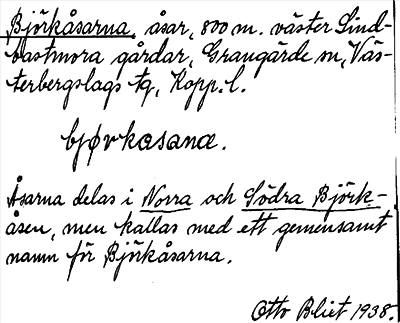 Björkåsarna, åsar, 800 m. väster Lind-
bastmora gårdar, Grangärde sn, Väs-
terbergslags tg, Kopp. l.
bjørkasana.
Åsarna delas i Norra och Södra Björk-
åsen, men kallas med ett gemensamt
namn för Björkåsarna.
Otto Blixt 1938.